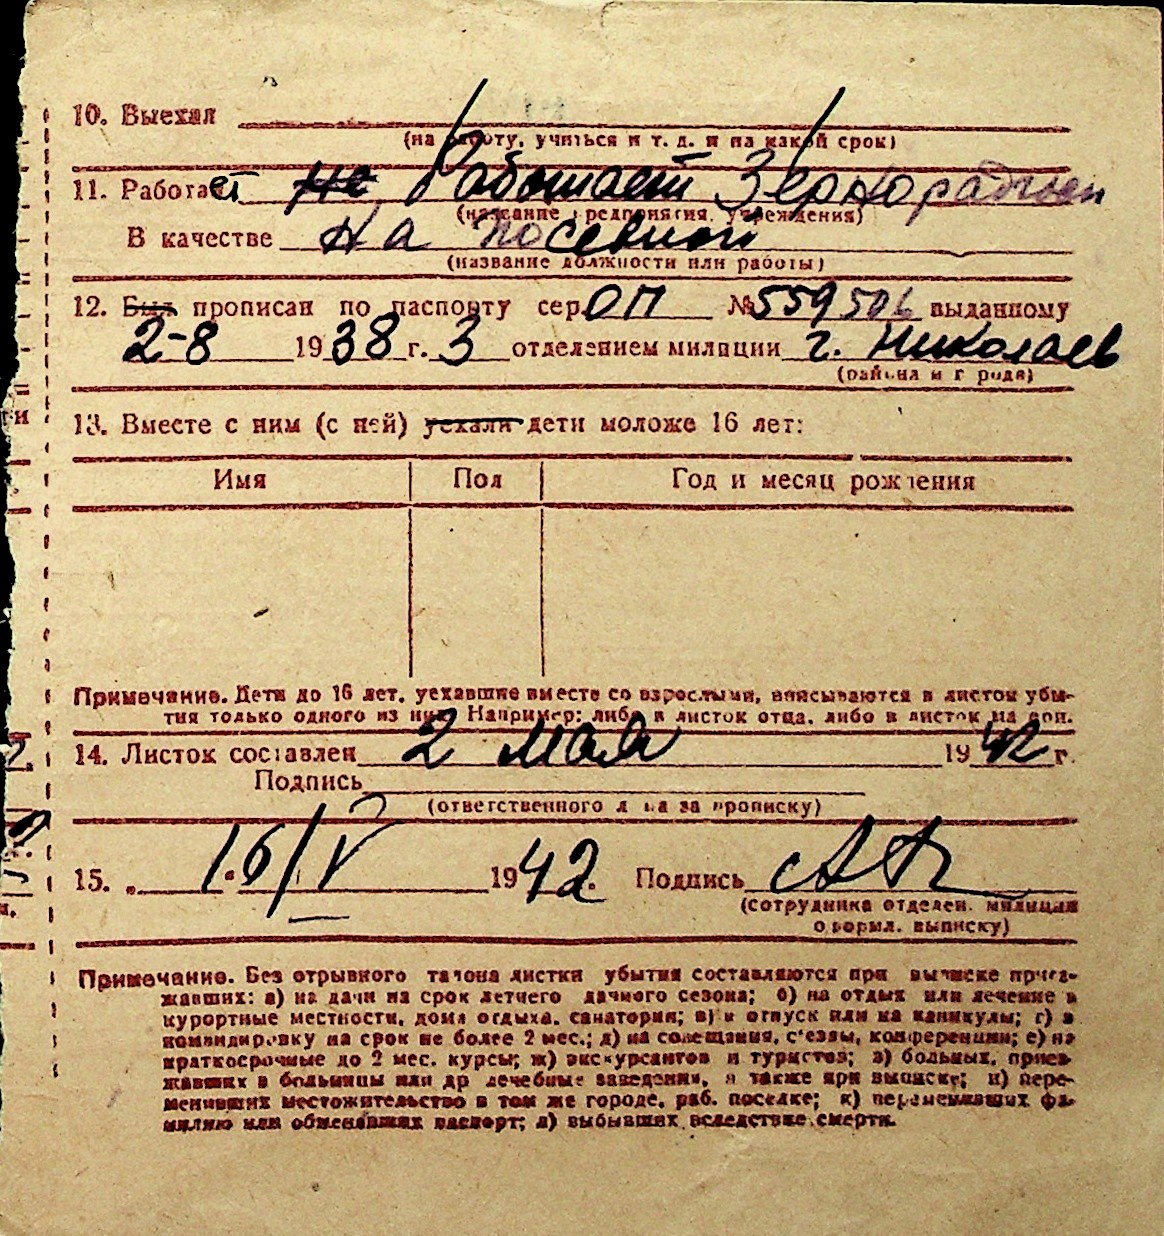 10. Выехал
(на работу, учиться и т. д. и на какой срок)
11. Работает не Работает Зерно
(название предприятия, учреждения)
В качестве на посевной
(название должности или работы)
12. Был прописан по паспорту сер. ОП № 559506 выданному
2-8 1938 г. 3 отделением милиции г. Николаев
(района и города)
13. Вместе с ним (с ней) уехали дети моложе 16 лет:
Имя Пол Год и месяц рождения
Примечание. Дети до 16 лет, уехавшие вместе со взрослыми, вписываются в листок убы-
тия только одного из них. Например: либо в листок отца, либо в листок
14. Листок составлен 2 мая 1942 г.
Подпись
(ответственного лица за прописку)
15. „ 16/V 1942. Подпись
(сотрудника отделен. милиции
оформл. выписку)
Примечание. Без отрывного талона листки убытия составляются при выписке приез-
жавших: а) на дачи на срок летнего дачного сезона; б) на отдых или лечение в
курортные местности, дома отдыха, санатории; в) в отпуск или на каникулы; г) в
командировку на срок не более 2 мес.; д) на совещания, съезды, конференции; е) на
краткосрочные до 2 мес. курсы; ж) экскурсантов и туристов; з) больных, приез-
жавших в больницы или др лечебные заведения, а также при выписке; и) пере-
менивших местожительство в том же городе, раб. поселке; к) переменивших фа-
милию или обменявших паспорт; л) выбывших вследствие смерти.